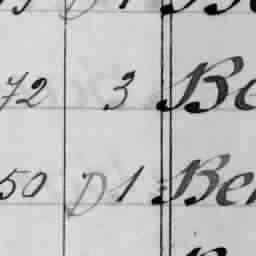 72 3 Be
50 D1 Ber